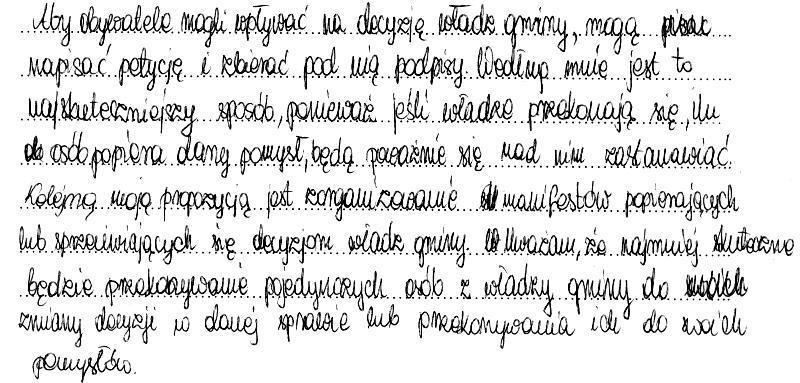 Aby obywatele mogli wpływać na decyzję władz gminy, mogą
napisać petycję i zbierać pod nią podpisy. Według mnie jest to
najskuteczniejszy sposób, ponieważ jeśli władze przekonają się, ilu
osób popiera dany pomysł, będą poważnie się nad nim zastanawiać.
Kolejną moją propozycją jest zorganizowanie manifestów popierających
lub sprzeciwiających się decyzjom władz gminy. Uważam, że najmniej skuteczne
będzie przekonywanie pojedynczych osób z władzy gminy do
zmiany decyzji w danej sprawie lub przekonywania ich do swoich
pomysłów.